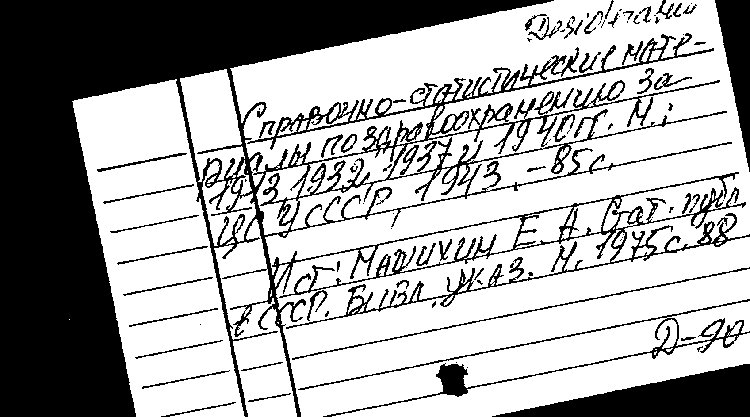 Desiderata
Справочно-статистические мате-
риалы по здравоохранению за
1913, 1932, 1937 и 1940 гг. М.;
ЦСУ СССР, 1943. - 85 с.
Ист: Машихин Е. А. Стат. публ.
в СССР. Библ. указ. М. 1975 с. 88
Д-90